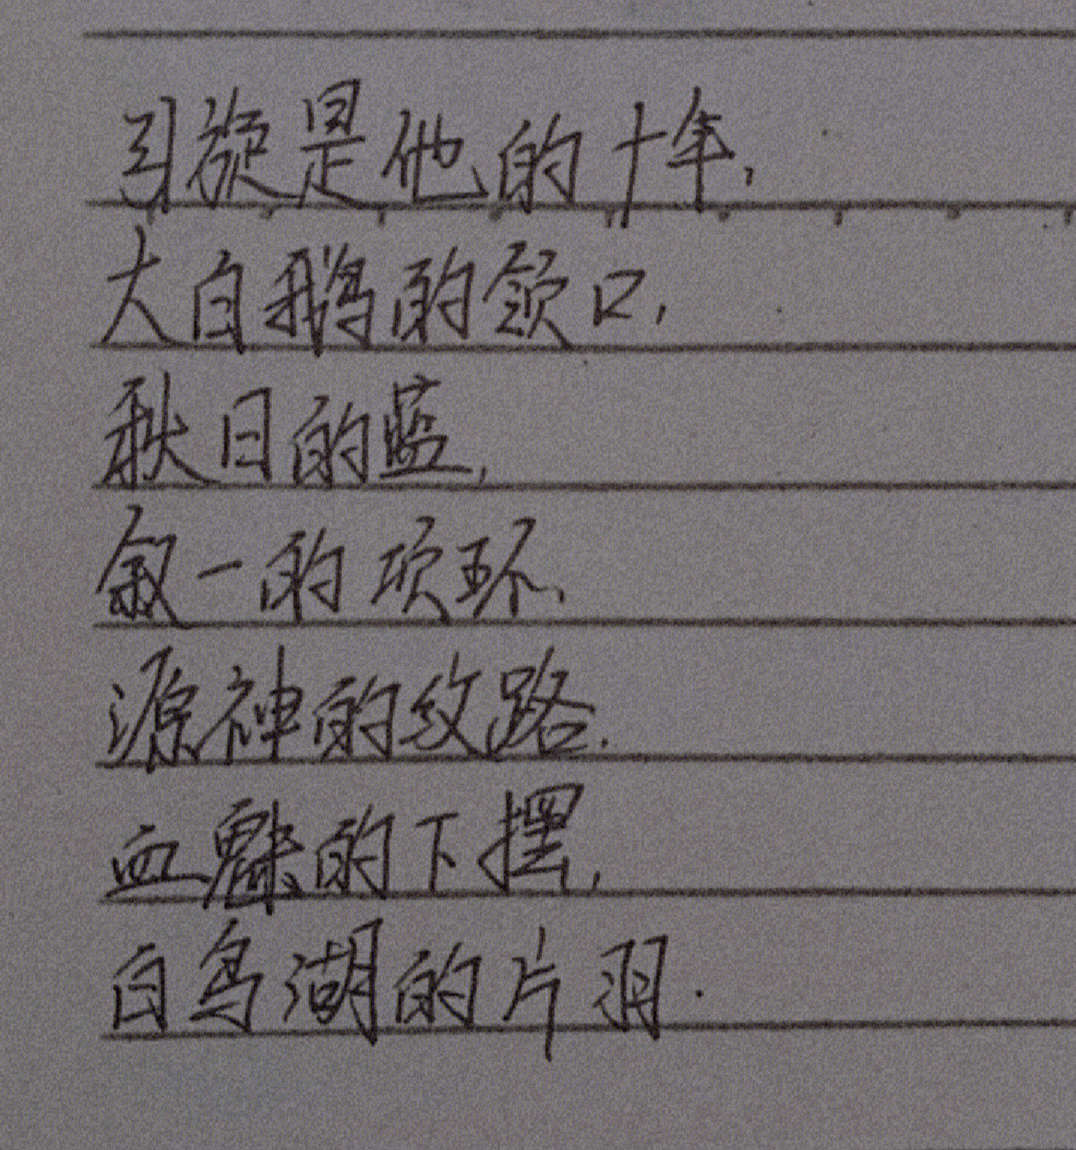 引旋是他的十年,
大白鹅的领口,
秋日的蓝,
叙一的项环、
源神的纹路.
血魅的下摆,
白鸟湖的片羽.